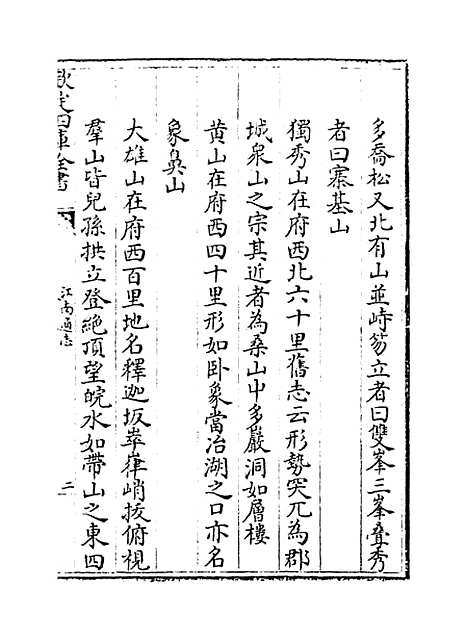 多喬松又北有山並峙旁立者曰雙峯三峯疊秀
者曰寨基山
獨秀山在府西北六十里舊志云形勢突兀為郡
城衆山之宗其近者為桑山中多巖洞如層樓
黄山在府西四十里形如卧象當冶湖之口亦名
象鼻山
大雄山在府西百里地名釋迦坂崒嵂峭拔俯視
羣山皆兒孫拱立登絶頂望皖水如帶山之東四
欽定四庫全書
江南通志